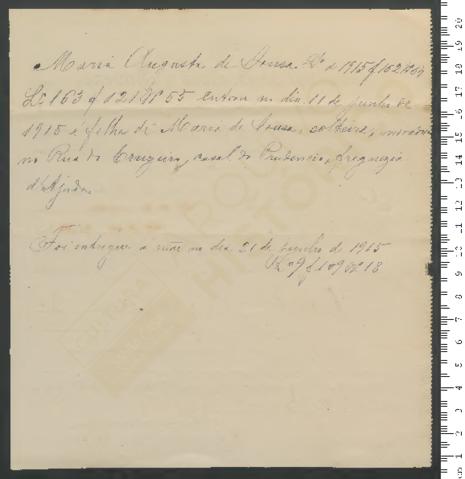 Maria Augusta de Sousa Lº d 1915 f 162 Nº 69
Lº 163 f 121 Nº 55 entrou no dia 11 de junho de
1915 e filha de Maria de Sousa, solteira, moradora
no Rua do Cruzeiro, casal do Prudencio, freguezia
d'Ajuda.
Foi entregue a mãe no dia 21 de junho de 1915
Lº 9 f 109 Nº 18